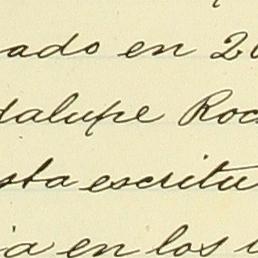 ado en 20
dalupe Roc
sta escritu
ia en los